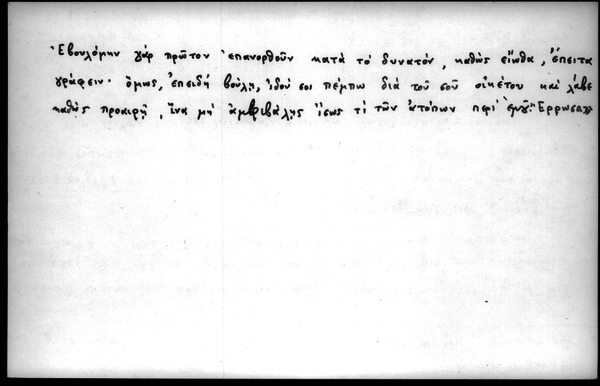 Ἐβουλόμην γάρ πρῶτον ἐπανορθοῦν κατά τό δυνατόν, καθώς εἴωθα, ἔπειτα
γράφειν· ὅμως, ἐπειδή βούλῃ, ἰδού σοι πέμπω διά τοῦ σοῦ οἰκέτου καί λάβε
καθώς προαιρῇ, ἵνα μή ἀμφιβάλῃς ἴσως τί τῶν ἀτόπων περί ἐμοῦ. Ἔρρωσο»